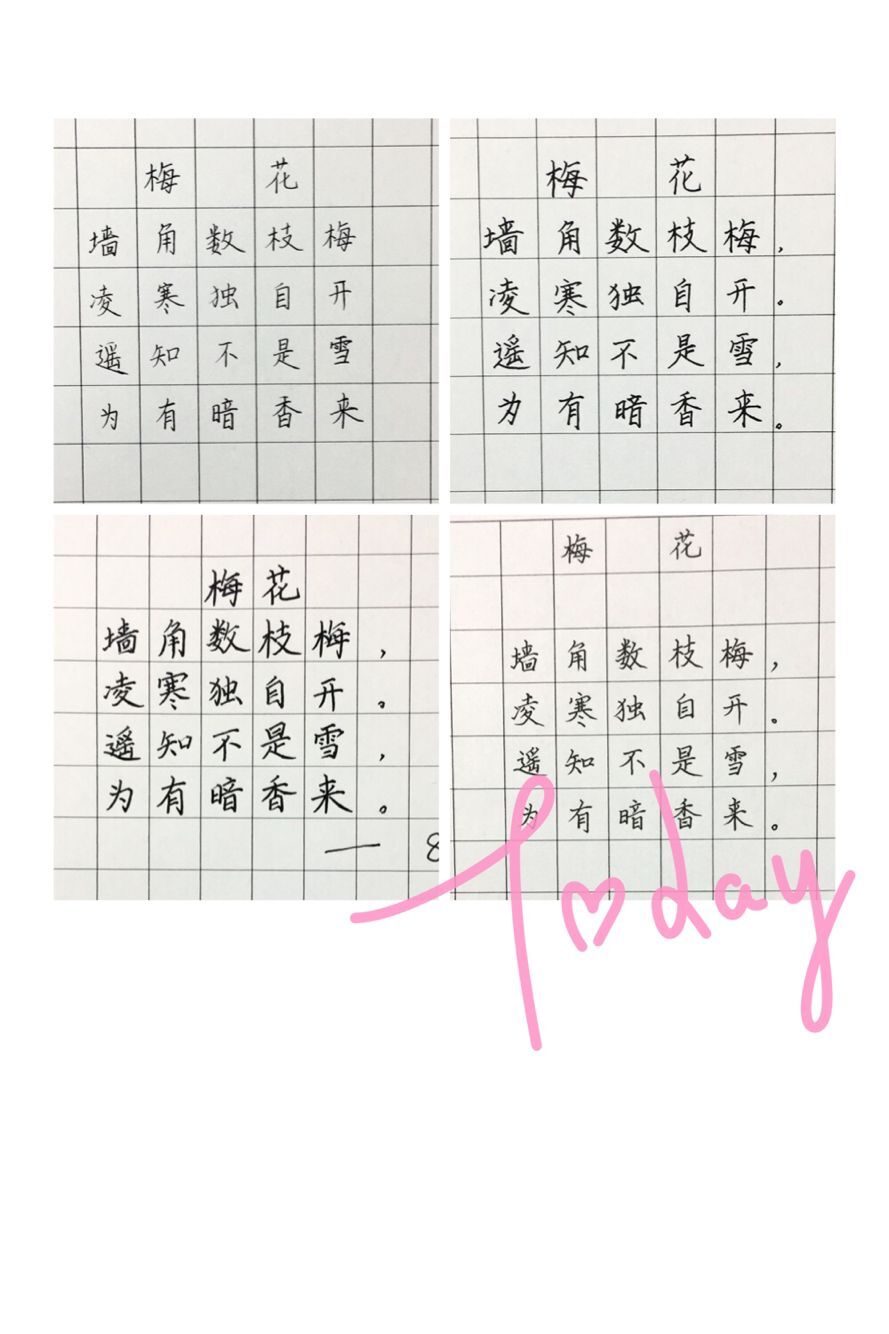 梅花
墙角数枝梅
凌寒独自开
遥知不是雪
为有暗香来
梅花
墙角数枝梅，
凌寒独自开。
遥知不是雪，
为有暗香来。
梅花
墙角数枝梅，
凌寒独自开。
遥知不是雪，
为有暗香来。
— 8
梅花
墙角数枝梅，
凌寒独自开。
遥知不是雪，
为有暗香来。
Today